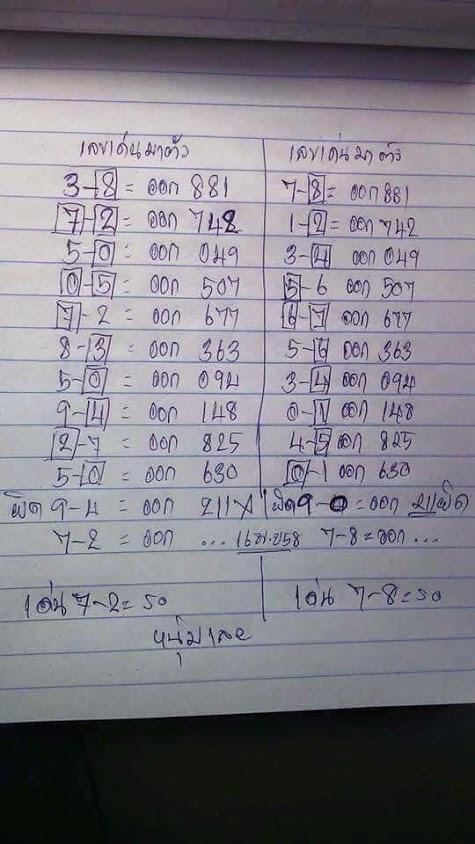 เลขเด่นมาตัว เลขเด่นมาตัว
3-8 = ออก 881 7-8 = ออก 881
7-2 = ออก 748 1-2 = ออก 742
5-0 = ออก 049 3-4 ออก 049
0-5 = ออก 507 5-6 ออก 507
7-2 = ออก 677 6-7 ออก 677
8-3 = ออก 363 5-6 ออก 363
5-0 = ออก 094 3-4 ออก 094
9-4 = ออก 148 0-1 ออก 148
2-7 = ออก 825 4-5 ออก 825
5-0 = ออก 630 0-1 ออก 630
ผิด 9-4 = ออก 211 X ผิด 9-0 = ออก 211 ผิด
7-2 = ออก ... 16 เม.ย 58 7-8 = ออก ...
เด่น 7-2 = 50 เด่น 7-8 = 50
หนุ่มเลย